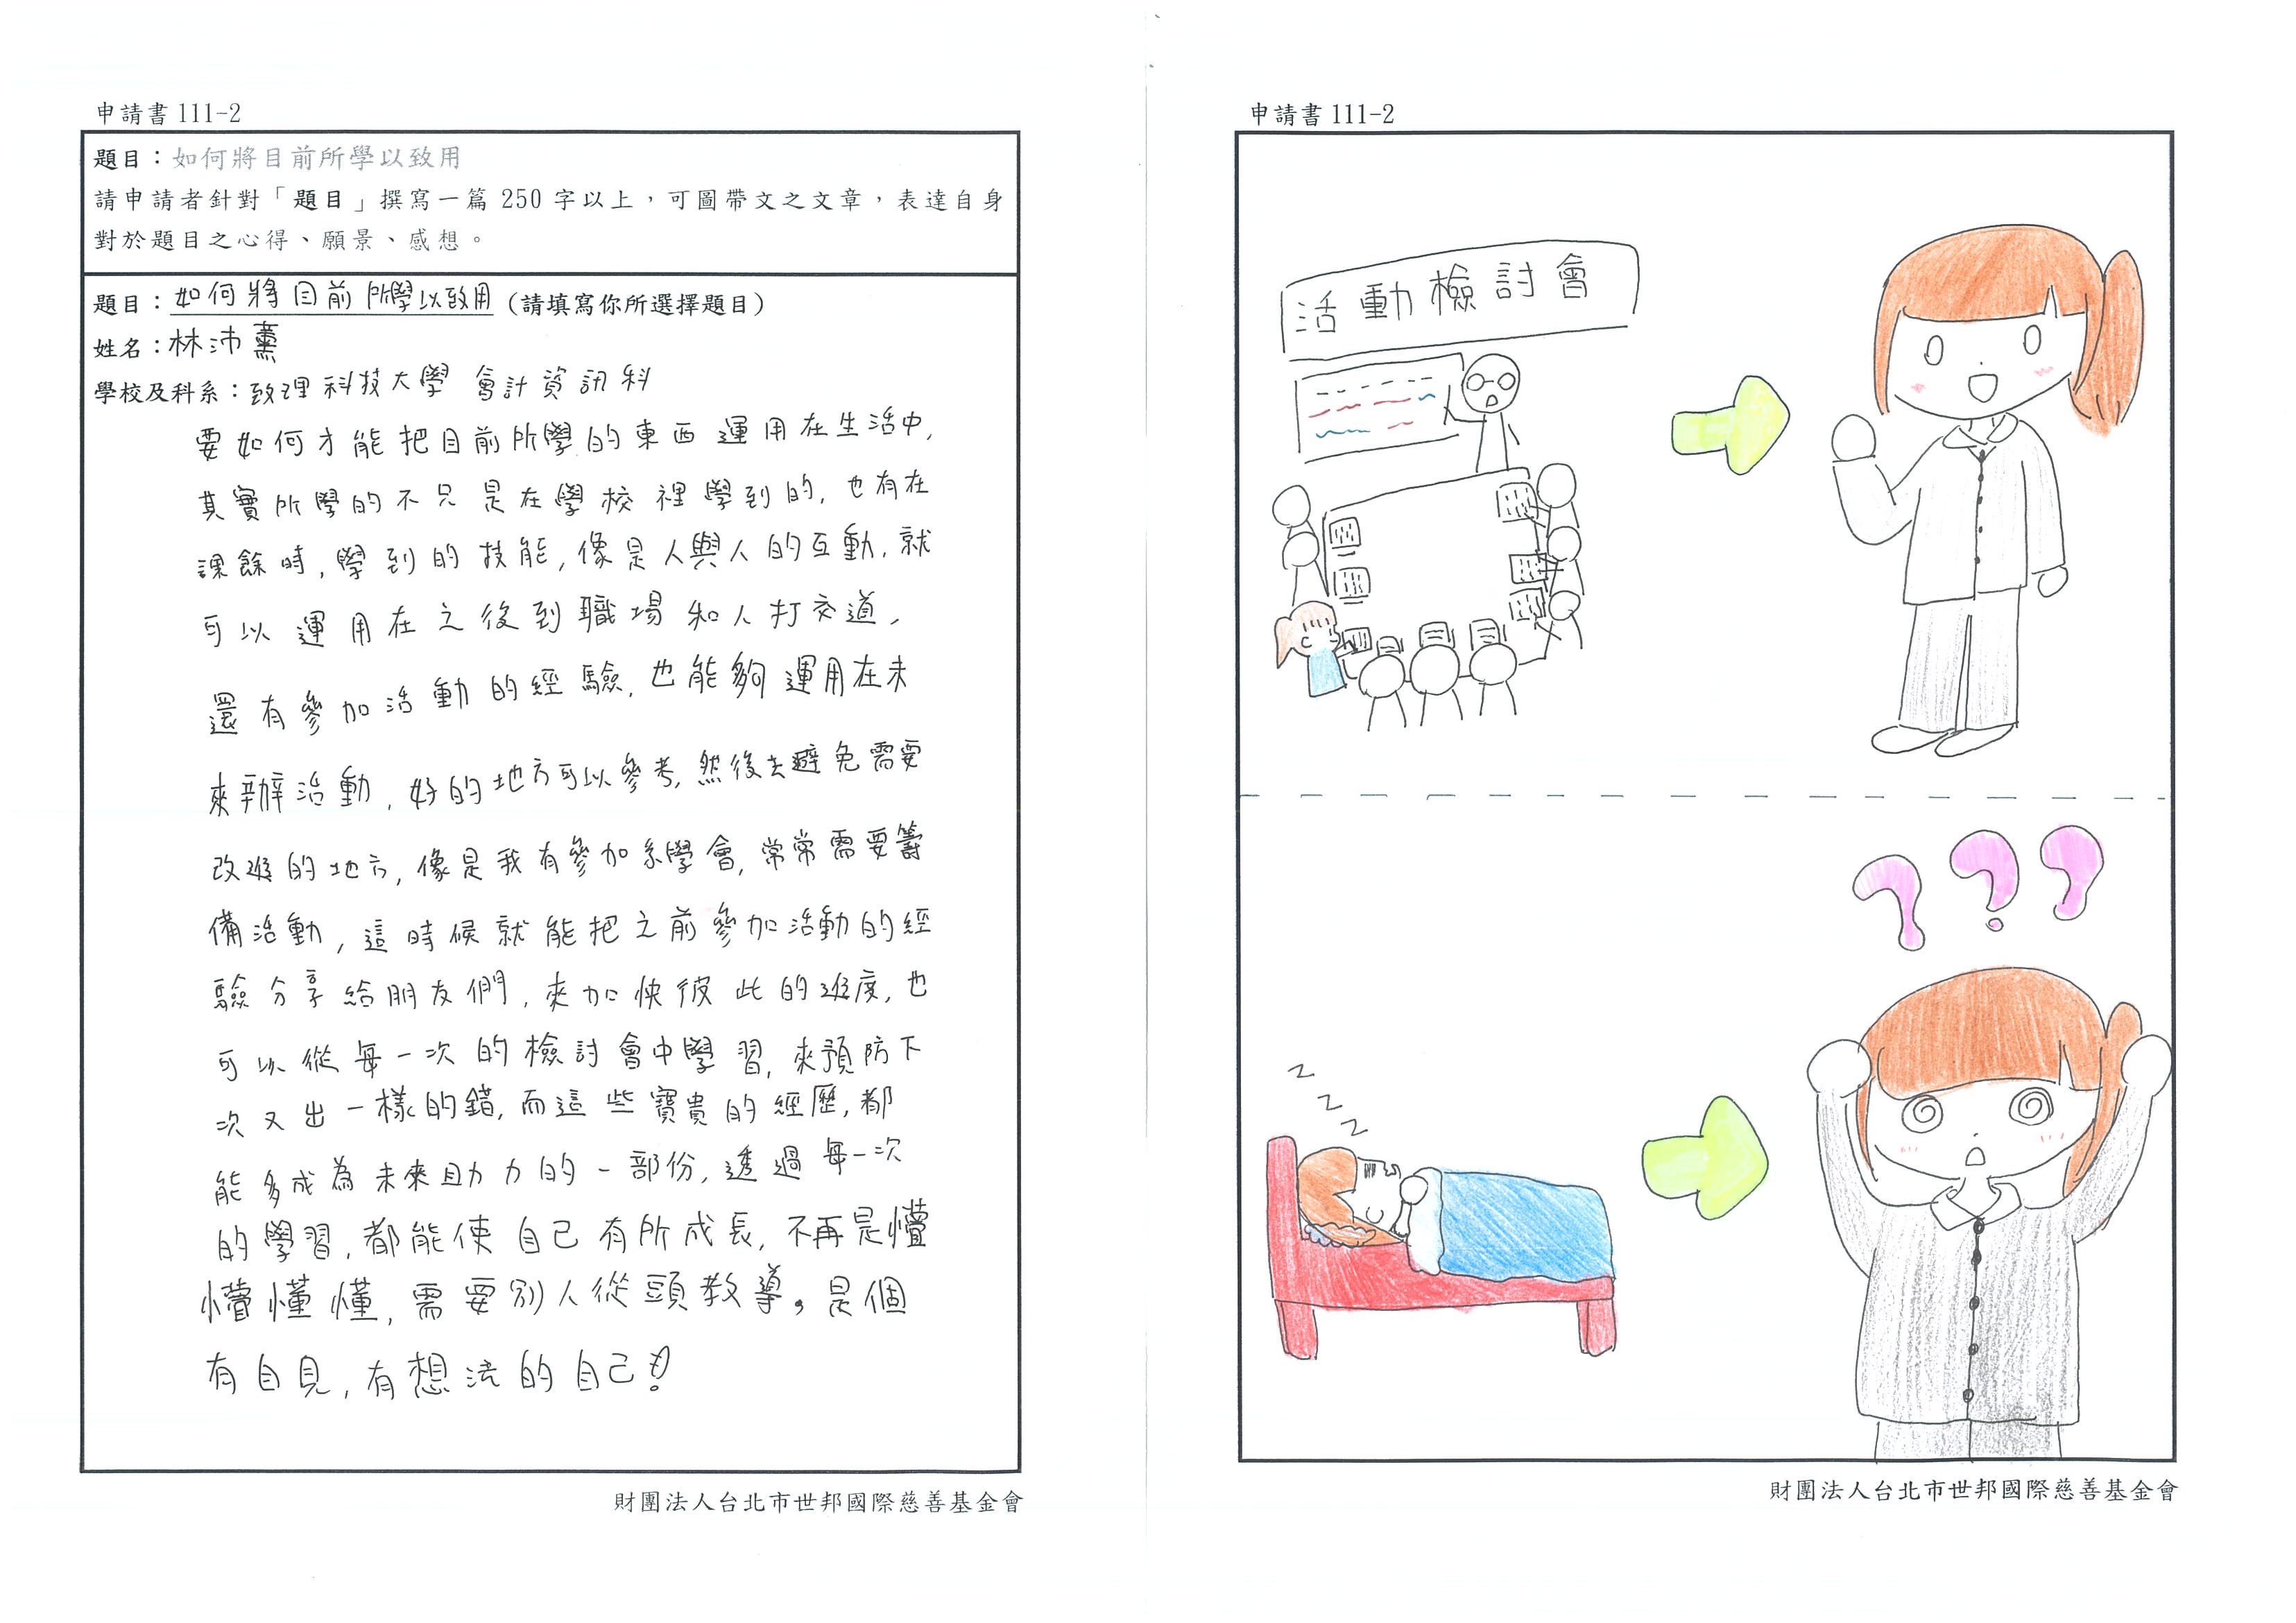 申請書 111-2
題目：如何將目前所學以致用
請申請者針對「題目」撰寫一篇 250 字以上，可圖帶文之文章，表達自身
對於題目之心得、願景、感想。
題目：如何將目前所學以致用（請填寫你所選擇題目）
姓名：林沛薰
學校及科系：致理科技大學 會計資訊科
要如何才能把目前所學的東西運用在生活中,
其實所學的不只是在學校裡學到的, 也有在
課餘時, 學到的技能, 像是人與人的互動, 就
可以運用在之後到職場和人打交道,
還有參加活動的經驗, 也能夠運用在未
來辦活動, 好的地方可以參考, 然後去避免需要
改進的地方, 像是我有參加系學會, 常常需要籌
備活動, 這時候就能把之前參加活動的經
驗分享給朋友們, 來加快彼此的進度, 也
可以從每一次的檢討會中學習, 來預防下
次又出一樣的錯, 而這些寶貴的經歷, 都
能多成為未來助力的一部份, 透過每一次
的學習, 都能使自己有所成長, 不再是懵
懵懂懂, 需要別人從頭教導, 是個
有自見, 有想法的自己!
財團法人台北市世邦國際慈善基金會
申請書 111-2
活動檢討會
? ? ?
z
z
z
財團法人台北市世邦國際慈善基金會